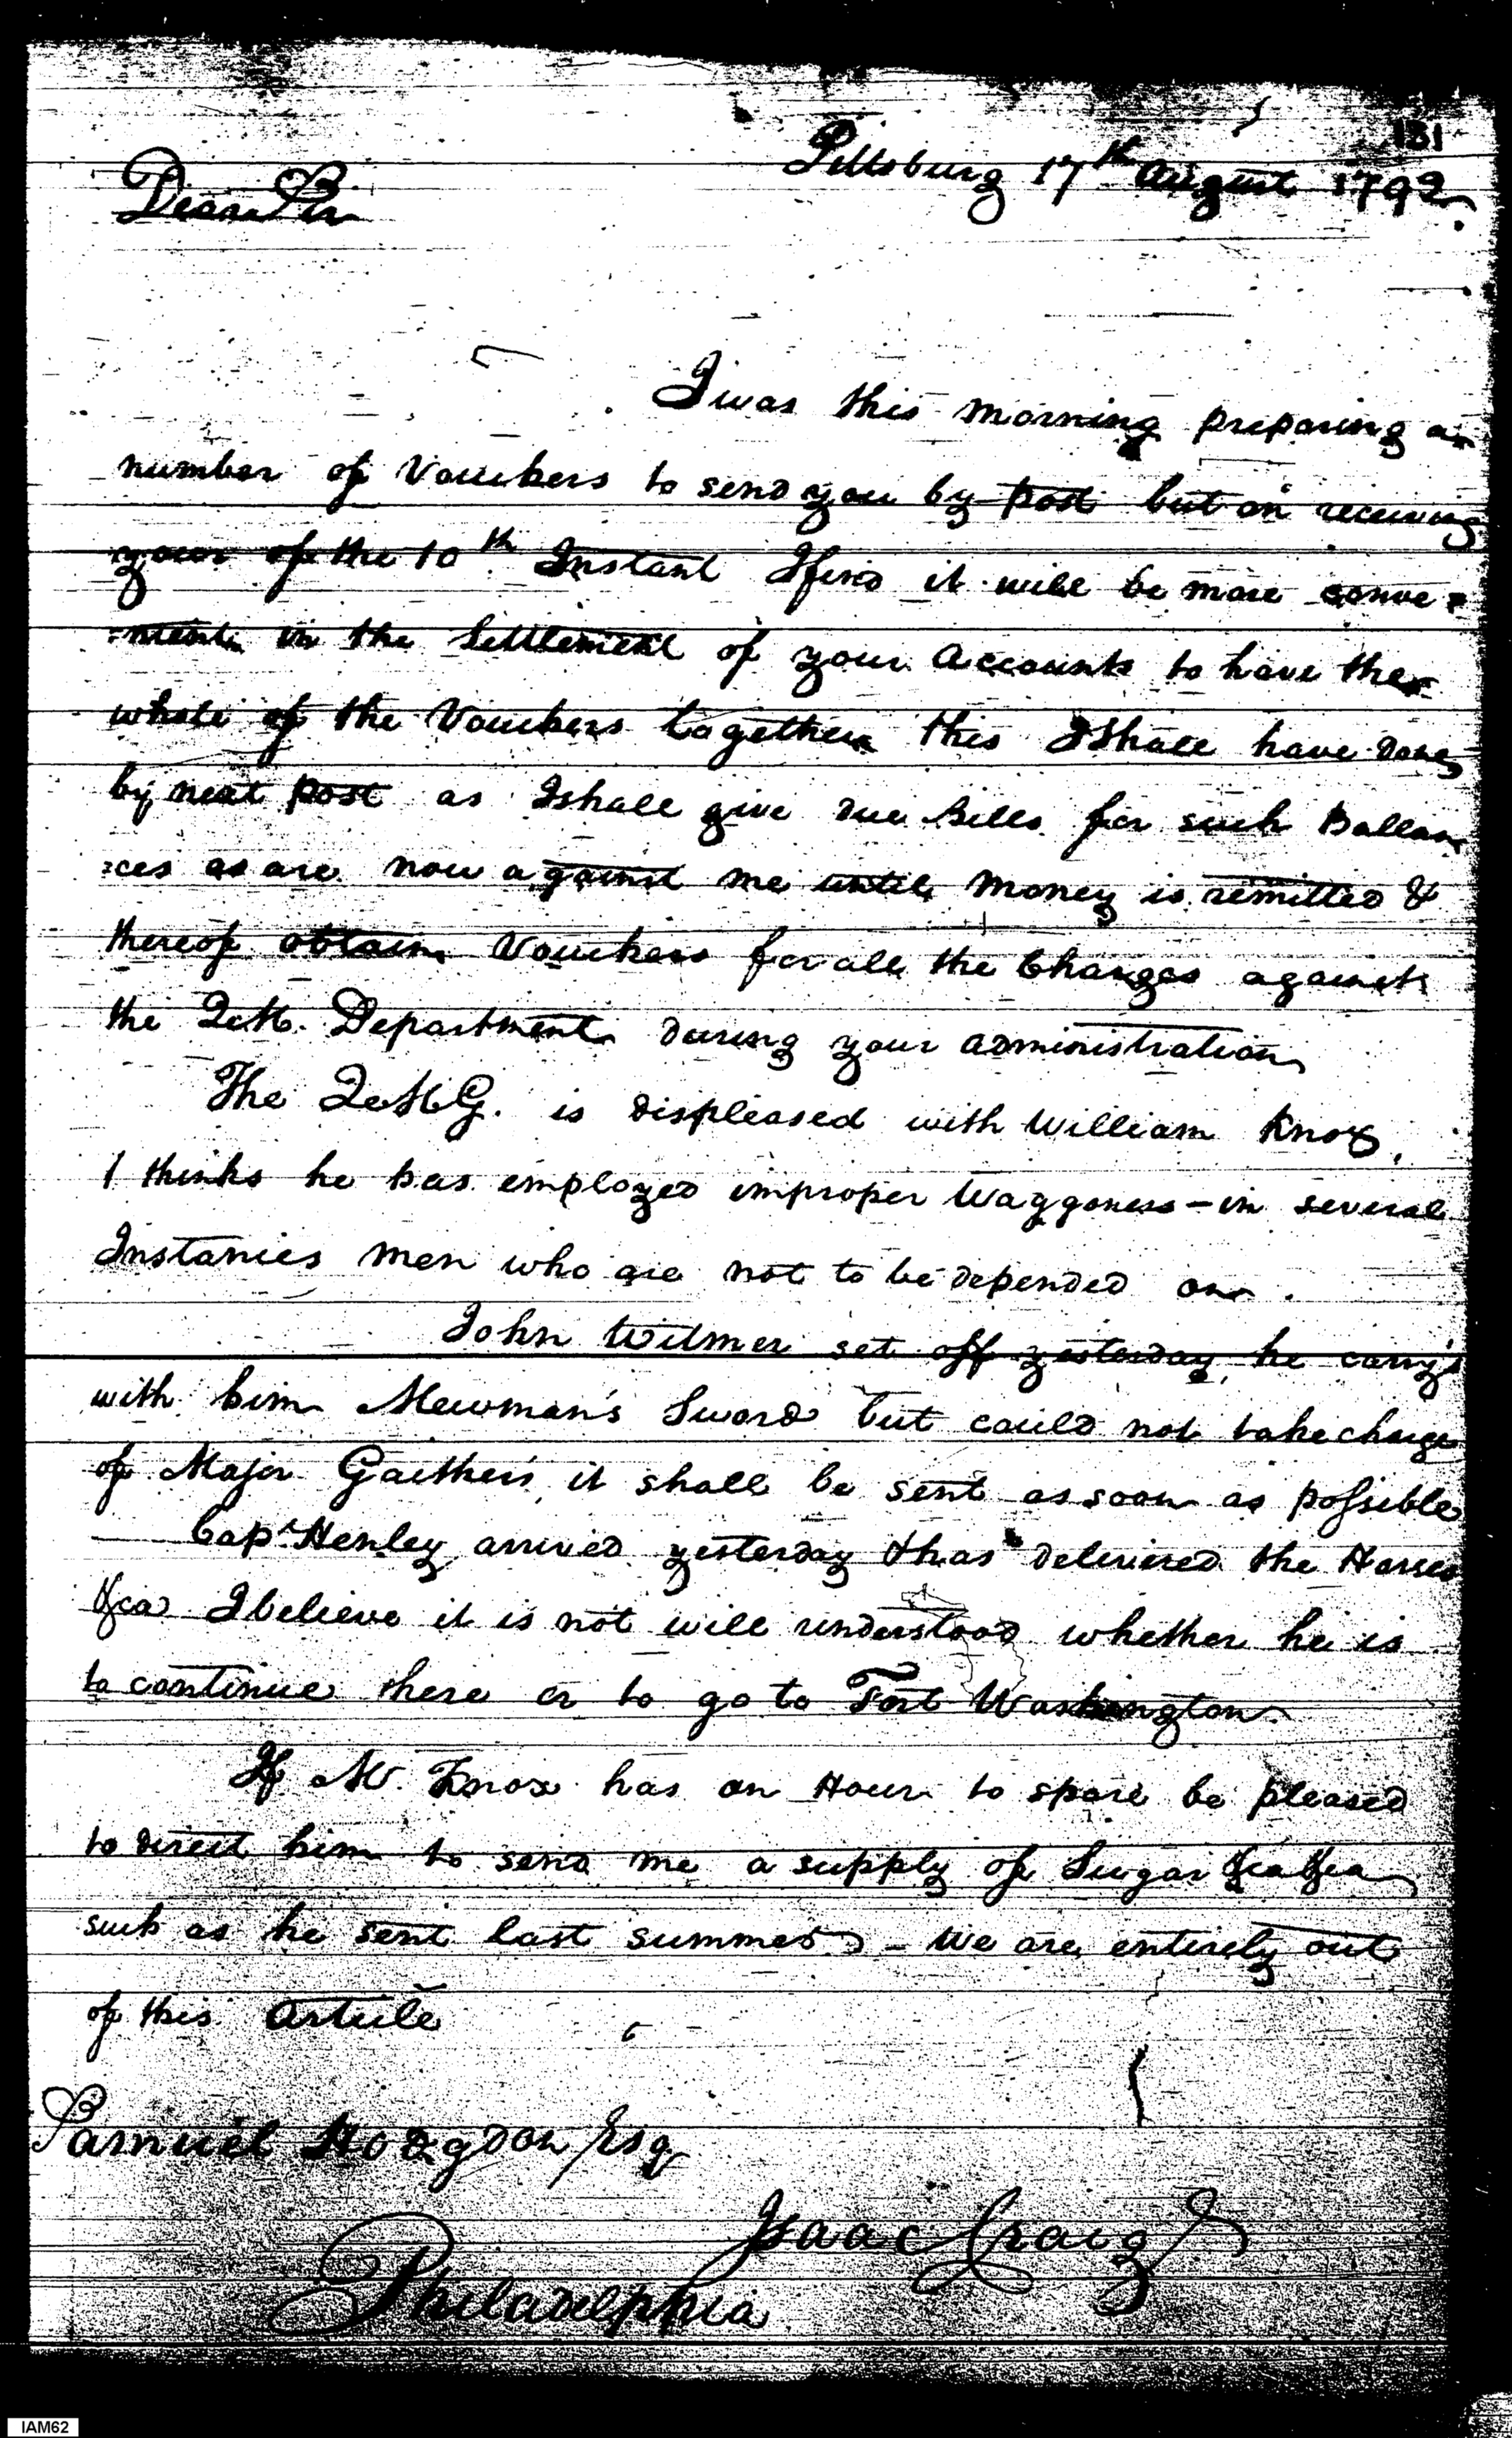 131
Pittsburg 17th August 1792.
Dear Sir
I was this morning preparing a
number of Vouchers to send you by post but on receiving
your of the 10th Instant I find it will be more conve=
=nient in the Settlement of your Accounts to have the
whole of the Vouchers together this I Shall have done
by next post as I shall give due Bills for such Ballan
=ces as are now against me until money is remitted &
thereof obtain Vouchers for all the Charges against
the Q.M. Department during your administration
The Q.M.G. is displeased with William Knox,
& thinks he has employed improper Waggoners - in several
Instances men who are not to be depended on.
John Wilmer set off yesterday, he carry's
with him Newman's Sword but could not take charge
of Major Gaither's, it shall be sent as soon as possible
Capt. Henley arrived yesterday & has delivered the Horses
&ca I believe it is not will understood whether he is
to continue there or to go to Fort Washington
If Mr. Knox has an Hour to spare be pleased
to direct him to send me a supply of Sugar &ca &ca
such as he sent last summer - We are entirely out
of this Article
Samuel Hodgdon Esq
Isaac Craig
Philadelphia
IAM62